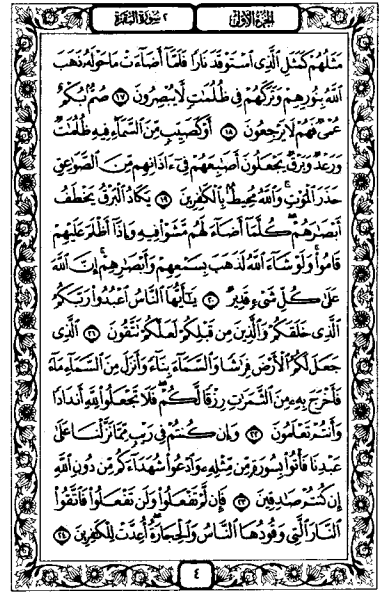 الجُزءُ الأَوَّلُ
٢ سُورَةُ البَقَرَةِ
مَثَلُهُمْ كَمَثَلِ ٱلَّذِى ٱسْتَوْقَدَ نَارًا فَلَمَّآ أَضَآءَتْ مَا حَوْلَهُۥ ذَهَبَ
ٱللَّهُ بِنُورِهِمْ وَتَرَكَهُمْ فِى ظُلُمَٰتٍ لَّا يُبْصِرُونَ ١٧ صُمٌّۢ بُكْمٌ
عُمْىٌ فَهُمْ لَا يَرْجِعُونَ ١٨ أَوْ كَصَيِّبٍ مِّنَ ٱلسَّمَآءِ فِيهِ ظُلُمَٰتٌ
وَرَعْدٌ وَبَرْقٌ يَجْعَلُونَ أَصَٰبِعَهُمْ فِىٓ ءَاذَانِهِم مِّنَ ٱلصَّوَٰعِقِ
حَذَرَ ٱلْمَوْتِ ۚ وَٱللَّهُ مُحِيطٌۢ بِٱلْكَٰفِرِينَ ١٩ يَكَادُ ٱلْبَرْقُ يَخْطَفُ
أَبْصَٰرَهُمْ ۖ كُلَّمَآ أَضَآءَ لَهُم مَّشَوْا۟ فِيهِ وَإِذَآ أَظْلَمَ عَلَيْهِمْ
قَامُوا۟ ۚ وَلَوْ شَآءَ ٱللَّهُ لَذَهَبَ بِسَمْعِهِمْ وَأَبْصَٰرِهِمْ ۚ إِنَّ ٱللَّهَ
عَلَىٰ كُلِّ شَىْءٍ قَدِيرٌ ٢٠ يَٰٓأَيُّهَا ٱلنَّاسُ ٱعْبُدُوا۟ رَبَّكُمُ
ٱلَّذِى خَلَقَكُمْ وَٱلَّذِينَ مِن قَبْلِكُمْ لَعَلَّكُمْ تَتَّقُونَ ٢١ ٱلَّذِى
جَعَلَ لَكُمُ ٱلْأَرْضَ فِرَٰشًا وَٱلسَّمَآءَ بِنَآءً وَأَنزَلَ مِنَ ٱلسَّمَآءِ مَآءً
فَأَخْرَجَ بِهِۦ مِنَ ٱلثَّمَرَٰتِ رِزْقًا لَّكُمْ ۖ فَلَا تَجْعَلُوا۟ لِلَّهِ أَندَادًا
وَأَنتُمْ تَعْلَمُونَ ٢٢ وَإِن كُنتُمْ فِى رَيْبٍ مِّمَّا نَزَّلْنَا عَلَىٰ
عَبْدِنَا فَأْتُوا۟ بِسُورَةٍ مِّن مِّثْلِهِۦ وَٱدْعُوا۟ شُهَدَآءَكُم مِّن دُونِ ٱللَّهِ
إِن كُنتُمْ صَٰدِقِينَ ٢٣ فَإِن لَّمْ تَفْعَلُوا۟ وَلَن تَفْعَلُوا۟ فَٱتَّقُوا۟
ٱلنَّارَ ٱلَّتِى وَقُودُهَا ٱلنَّاسُ وَٱلْحِجَارَةُ ۖ أُعِدَّتْ لِلْكَٰفِرِينَ ٢٤
٤